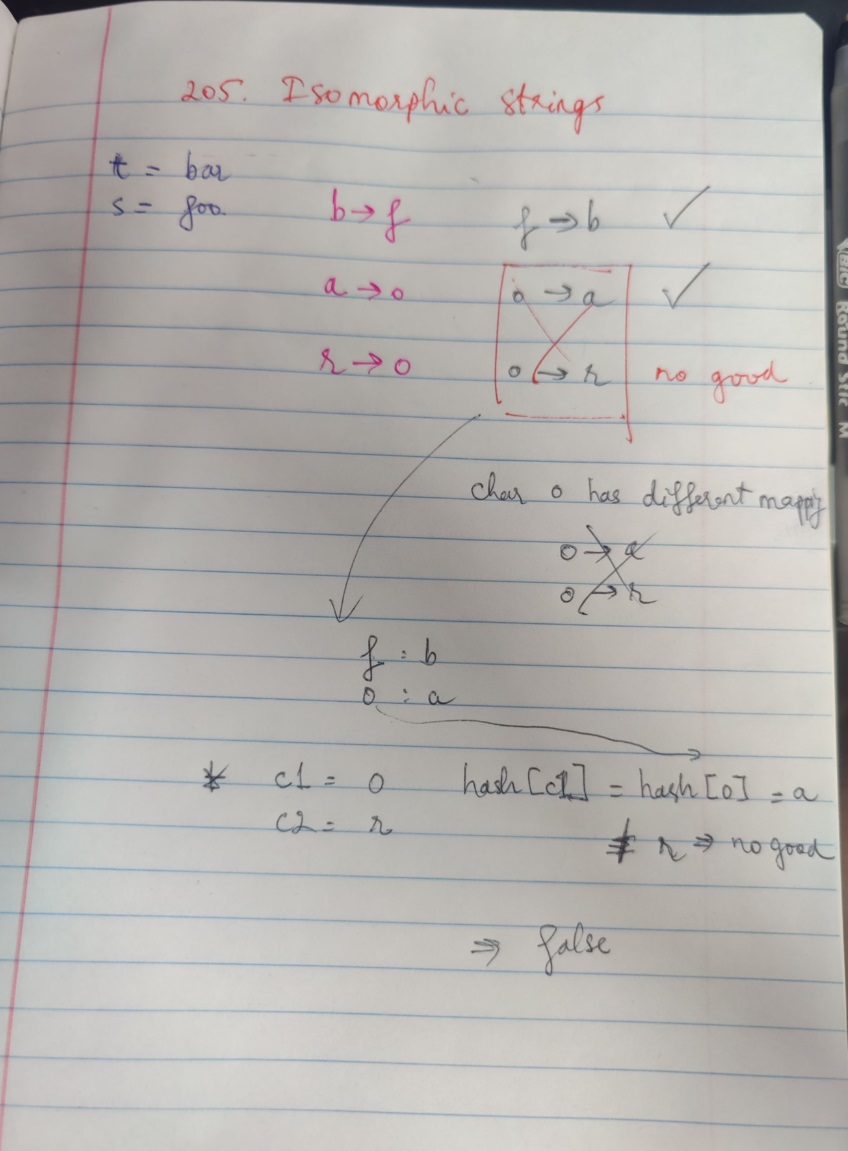 205. Isomorphic strings
t = bar
s = foo
b → f f → b ✓
a → o o → a ✓
r → o o → r no good
char o has different mapp'g
o → a
o → r
f : b
o : a
* c1 = o hash[c1] = hash[o] = a
c2 = r ≠ r ⇒ no good
⇒ false
BIC Round Stic M